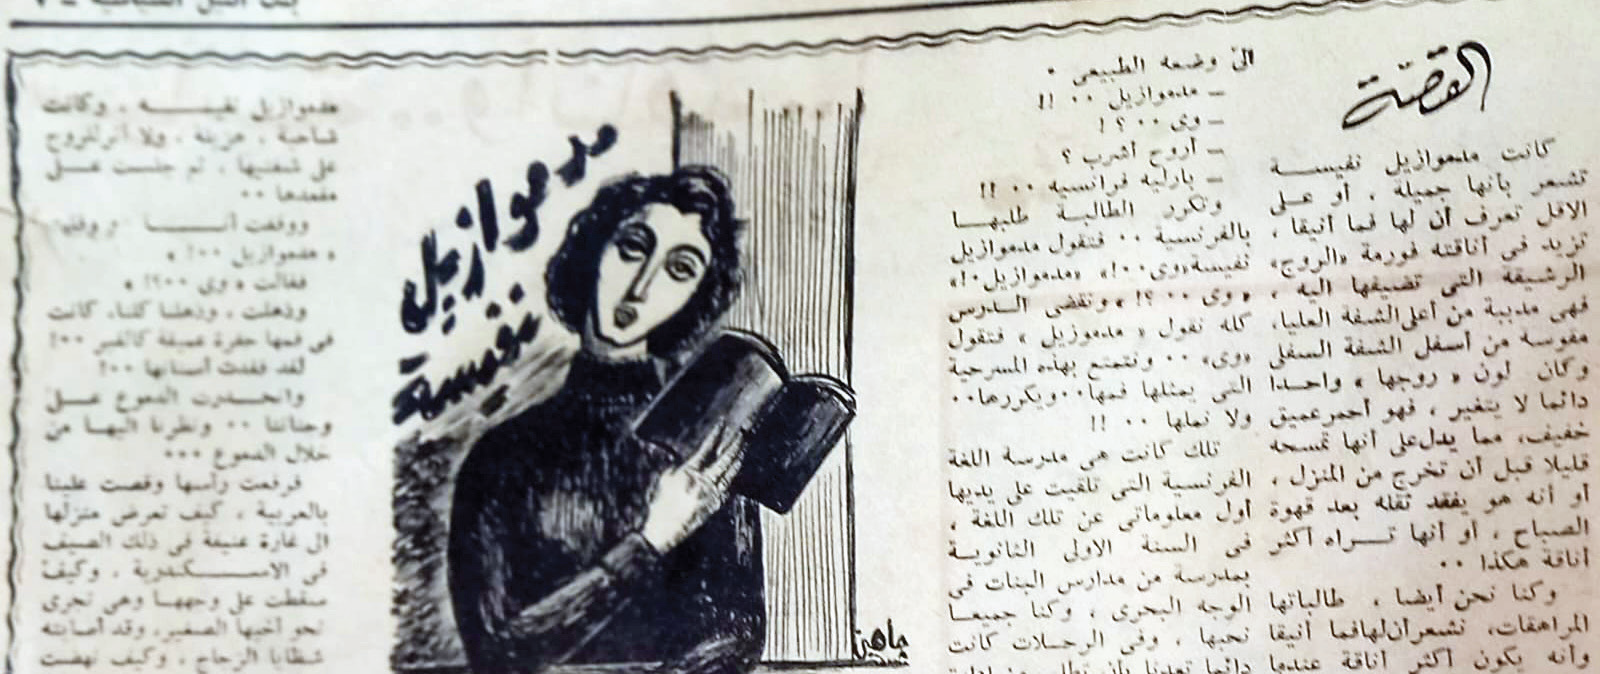 القصة
كانت مدموازيل نفيسة
تشعر بأنها جميلة ، أو على
الاقل تعرف أن لها فما أنيقا ،
تزيد في أناقته فورمة «الروج»
الرشيقة التي تضيفها اليه ،
فهى مدببة من أعلى الشفة العليا،
مقوسة من أسفل الشفة السفلى
وكان لون « روجها » واحدا
دائما لا يتغير ، فهو أحمر عميق
خفيف، مما يدل على أنها تمسحه
قليلا قبل أن تخرج من المنزل ،
أو أنه هو يفقد ثقله بعد قهوة
الصباح ، أو أنها تراه أكثر
أناقة هكذا ..
وكنا نحن أيضا ، طالباتها
المراهقات، نشعر أن لها فما أنيقا
وأنه يكون أكثر أناقة عندما
الى وضعه الطبيعى .
— مدموازيل .. !!
— وى .. ؟ !
— أروح أشرب ؟
— بارليه فرانسيه .. !!
وتكرر الطالبة طلبها
بالفرنسية .. فتقول مدموازيل
نفيسة «وى..!» «مدموازيل.!»
« وى .. ؟! » ونقضى الدرس
كله نقول « مدموزيل » فتقول
«وى» .. ونتمتع بهذه المسرحية
التي يمثلها فمها..ويكررها..
ولا نملها .. !!
تلك كانت هى مدرسة اللغة
الفرنسية التي تلقيت على يديها
أول معلوماتى عن تلك اللغة ،
فى السنة الاولى الثانوية
بمدرسة من مدارس البنات فى
الوجه البحرى ، وكنا جميعا
نحبها ، وفى الرحلات كانت
مدموازيل
نفيسة
مدموازيل نفيسة ، وكانت
شاحبة ، حزينة ، ولا أثر للروج
على شفتيها ، ثم جلست على
مقعدها ..
ووقفت أنا وقلت
« مدموازيل ..! »
فقالت « وى ..؟! »
وذهلت ، وذهلنا كلنا، كانت
فى فمها حفرة عميقة كالقبر ..!
لقد فقدت أسنانها ..!
وانحدرت الدموع على
وجناتنا .. ونظرنا اليها من
خلال الدموع ...
فرفعت رأسها وقصت علينا
بالعربية ، كيف تعرض منزلها
الى غارة عنيفة فى ذلك الصيف
فى الاسكندرية ، وكيف
سقطت على وجهها وهى تجرى
نحو أخيها الصغير، وقد أصابته
شظايا الزجاج ، وكيف نهضت